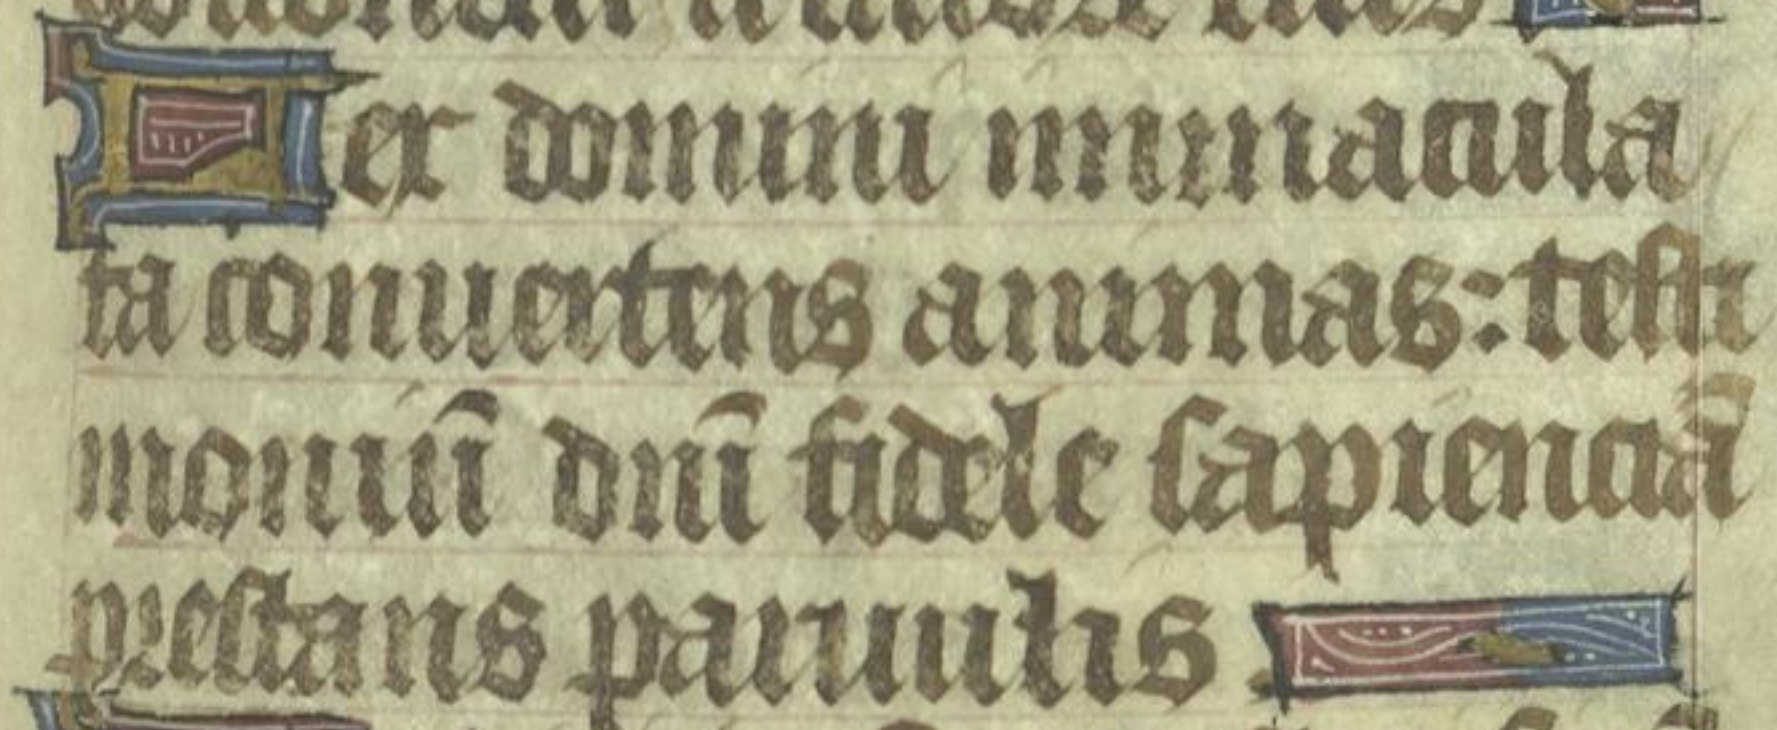 Lex domini immacula
ta conuertens animas: testi
moniū dñi fidele sapienciā
prestans paruulis.